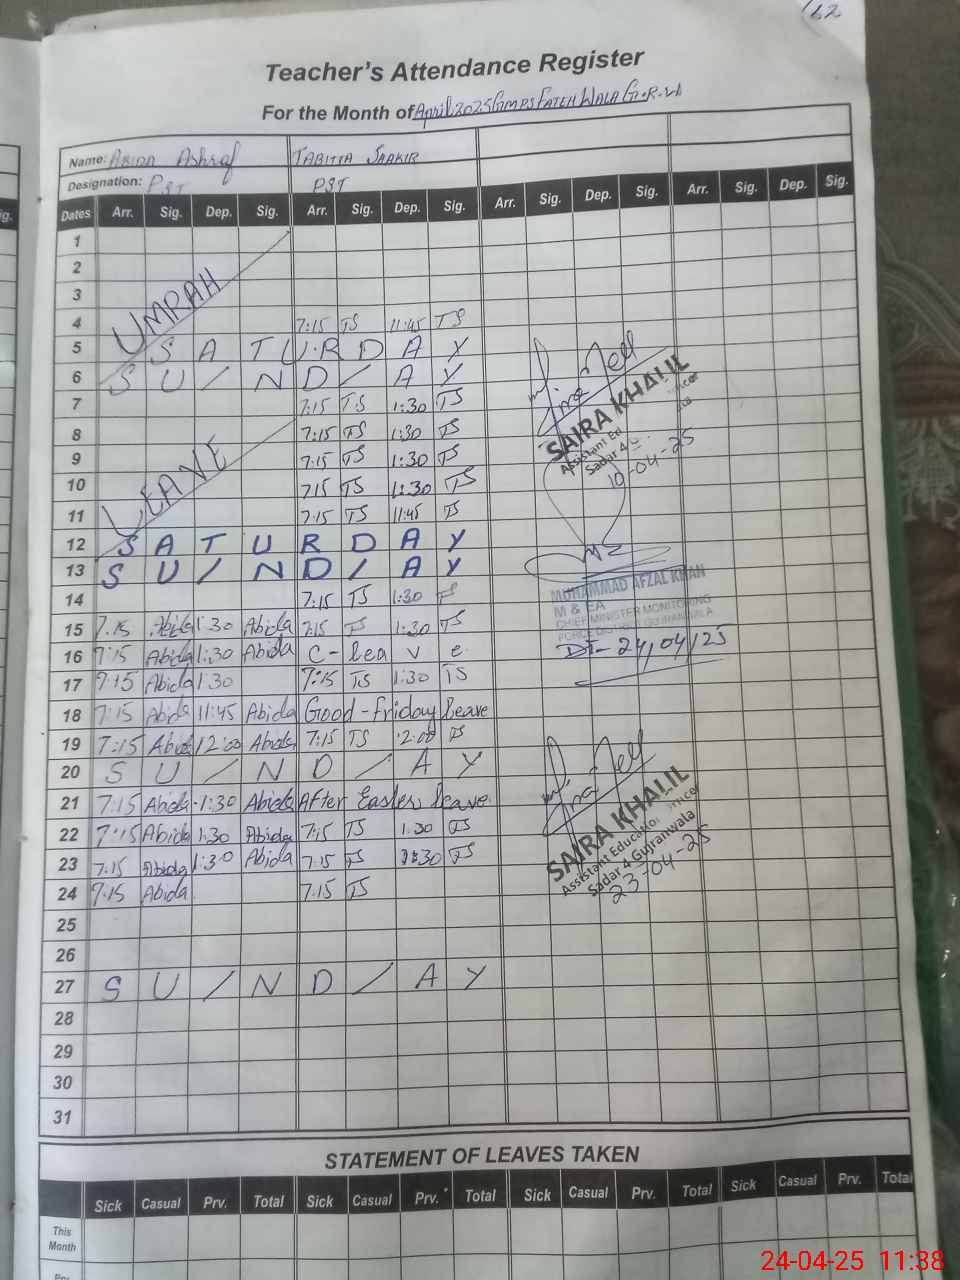 162
Teacher's Attendance Register
For the Month of April 2025 GMPS FATEH WALA G.R.W
Name: ABIDA Ashraf TABITTA SAAKIR
Designation: PST PST
Dates Arr. Sig. Dep. Sig. Arr. Sig. Dep. Sig. Arr. Sig. Dep. Sig. Arr. Sig. Dep. Sig.
1
2
3
UMRAH
4 7:15 TS 11:45 TS
5 S A T U R D A Y
6 S U / N D / A Y
7 7:15 TS 1:30 TS
8 7:15 TS 1:30 TS
9 7:15 TS 1:30 TS
10 7:15 TS 1:30 TS
LEAVE
11 7:15 TS 11:45 TS
12 S A T U R D A Y
13 S U / N D / A Y
14 7:15 TS 1:30 TS
15 7.15 Abida 1:30 Abida 7:15 TS 1:30 TS
16 7:15 Abida 1:30 Abida C-lea v e
17 7:15 Abida 1:30 7:15 TS 1:30 TS
18 7:15 Abida 11:45 Abida Good-Friday leave
19 7:15 Abida 12:00 Abida 7:15 TS 2:00 TS
20 S U / N D / A Y
21 7:15 Abida 1:30 Abida After Easter leave
22 7:15 Abida 1:30 Abida 7:15 TS 1:30 TS
23 7:15 Abida 1:30 Abida 7:15 TS 1:30 TS
24 7:15 Abida 7:15 TS
25
26
27 S U / N D / A Y
28
29
30
31
SAIRA KHALIL
Assistant Ed
Sadar 4
10-04-25
MUHAMMAD AFZAL KHAN
M & EA
CHIEF MINISTER MONITORING
FORCE DISTRICT GUJRANWALA
DT- 24/04/25
SAIRA KHALIL
Assistant Education
Sadar 4 Gujranwala
23-04-25
STATEMENT OF LEAVES TAKEN
Sick Casual Prv. Total Sick Casual Prv. Total Sick Casual Prv. Total Sick Casual Prv. Total
This
Month
24-04-25 11:38